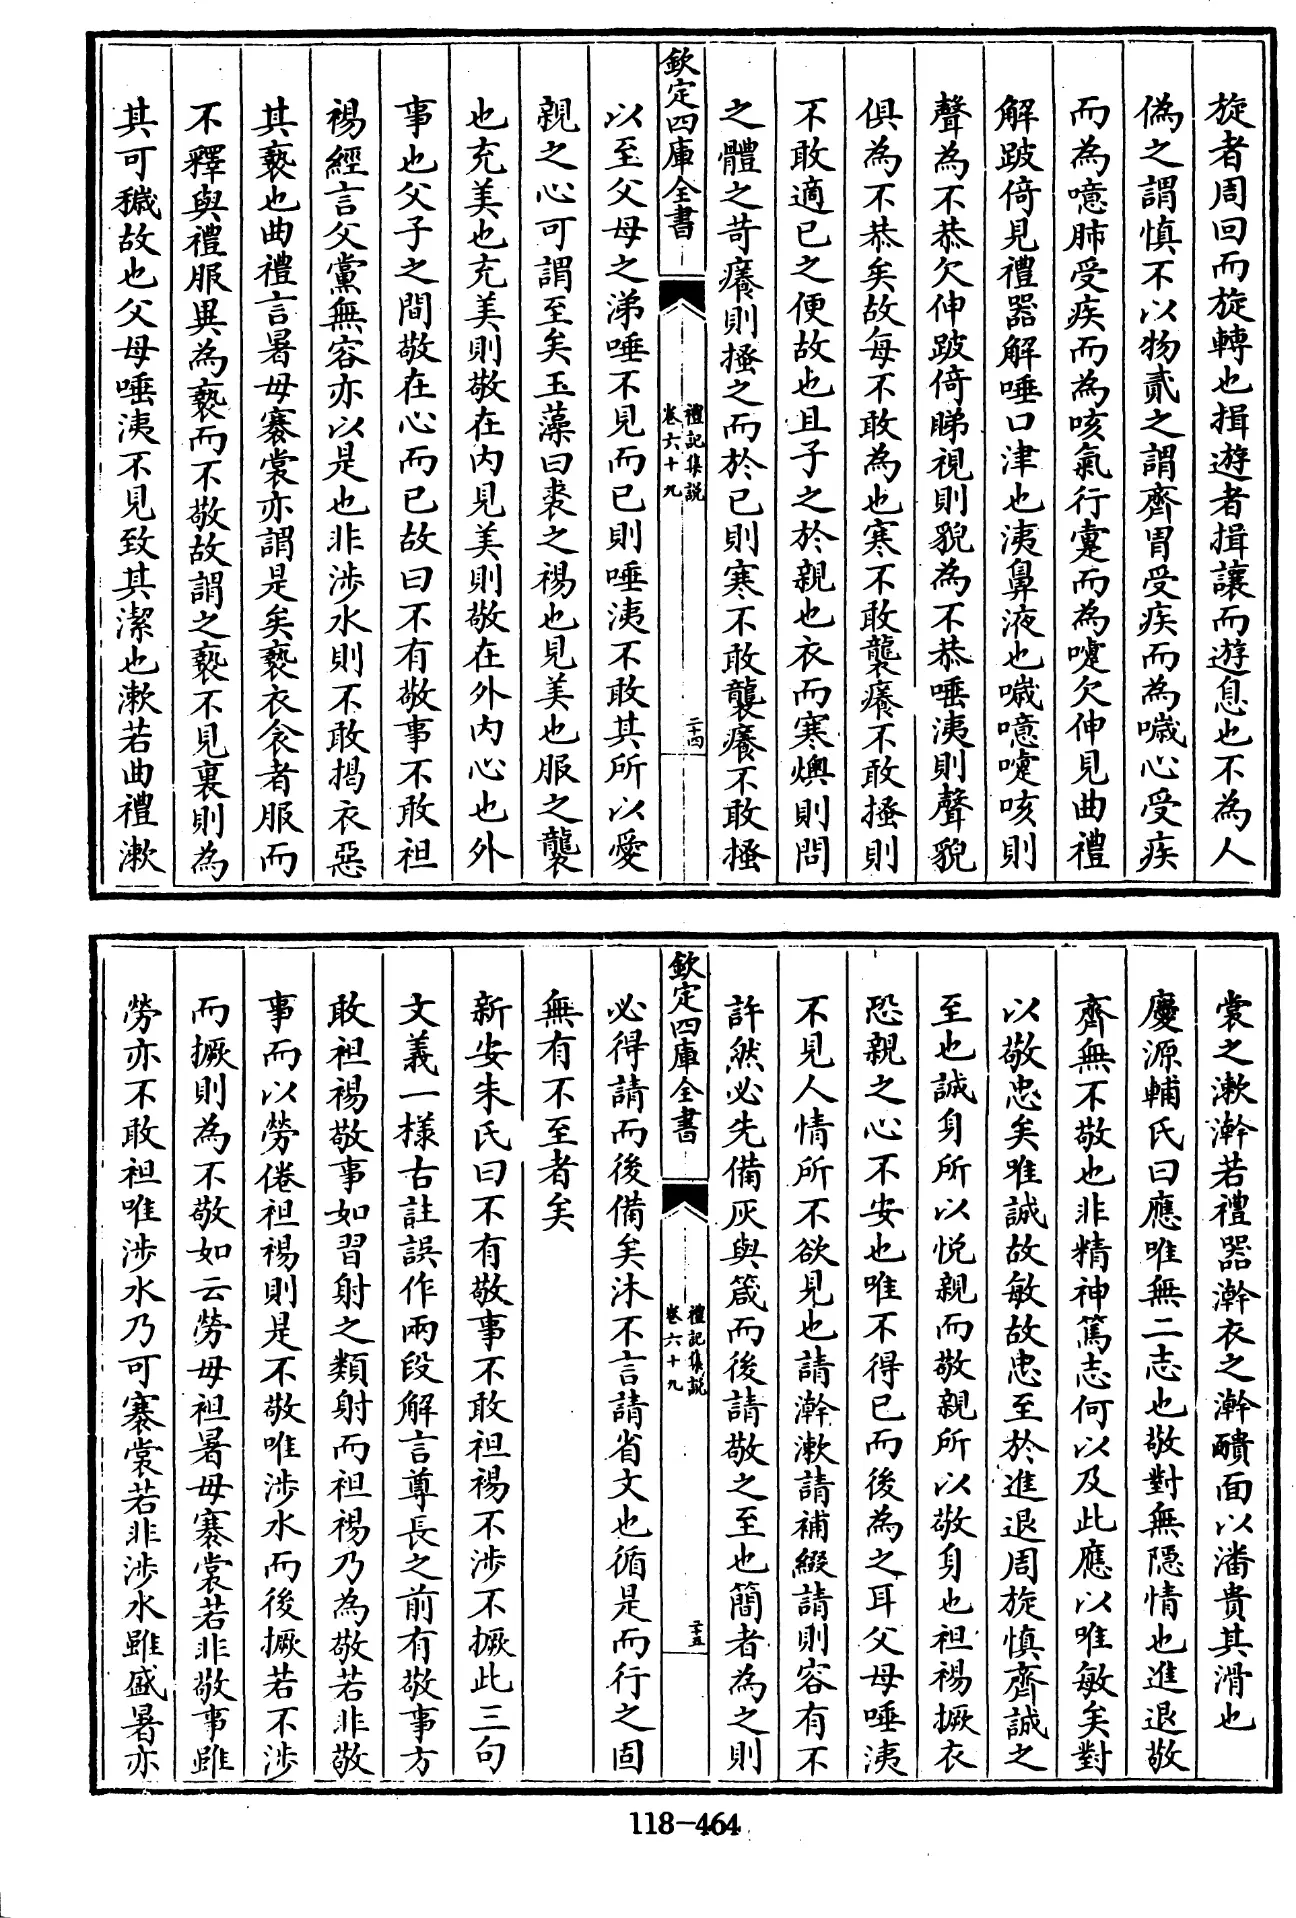 旋者周回而旋轉也揖遊者揖讓而遊息也不為人
偽之謂慎不以物貳之謂齊胃受疾而為噦心受疾
而為噫肺受疾而為咳氣行疐而為嚏欠伸見曲禮
解跛倚見禮器解唾口津也洟鼻液也噦噫嚏咳則
聲為不恭欠伸跛倚睇視則貌為不恭唾洟則聲貌
俱為不恭矣故每不敢為也寒不敢襲癢不敢搔則
不敢適已之便故也且子之於親也衣而寒燠則問
之體之苛癢則搔之而於已則寒不敢襲癢不敢搔
欽定四庫全書
禮記集說
卷六十九
二十四
以至父母之涕唾不見而已則唾洟不敢其所以愛
親之心可謂至矣玉藻曰裘之裼也見美也服之襲
也充美也充美則敬在内見美則敬在外内心也外
事也父子之間敬在心而已故曰不有敬事不敢袒
裼經言父黨無容亦以是也非涉水則不敢掲衣惡
其褻也曲禮言暑毋褰裳亦謂是矣褻衣衾者服而
不釋與禮服異為褻而不敬故謂之褻不見裏則為
其可穢故也父母唾洟不見致其潔也漱若曲禮漱
裳之漱澣若禮器澣衣之澣靧面以潘貴其滑也
慶源輔氏曰應唯無二志也敬對無隱情也進退敬
齊無不敬也非精神篤志何以及此應以唯敏矣對
以敬忠矣唯誠故敏故忠至於進退周旋慎齊誠之
至也誠身所以悅親而敬親所以敬身也袒裼撅衣
恐親之心不安也唯不得已而後為之耳父母唾洟
不見人情所不欲見也請澣漱請補綴請則容有不
許然必先備灰與箴而後請敬之至也簡者為之則
欽定四庫全書
禮記集說
卷六十九
二十五
必得請而後備矣沐不言請省文也循是而行之固
無有不至者矣
新安朱氏曰不有敬事不敢袒裼不涉不撅此三句
文義一様古註誤作兩段解言尊長之前有敬事方
敢袒裼敬事如習射之類射而袒裼乃為敬若非敬
事而以勞倦袒裼則是不敬唯涉水而後撅若不涉
而撅則為不敬如云勞毋袒暑毋褰裳若非敬事雖
勞亦不敢袒唯涉水乃可褰裳若非涉水雖盛暑亦
118-464